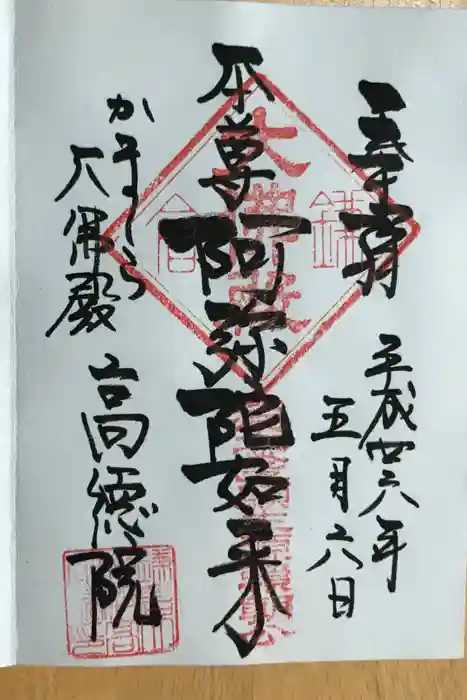 奉拝
平成廿六年
五月六日
本尊
阿弥陀如来
かまくら
大佛殿
高德院